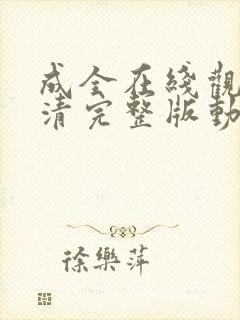 成全在綫觀
清完整版動
徐樂萍